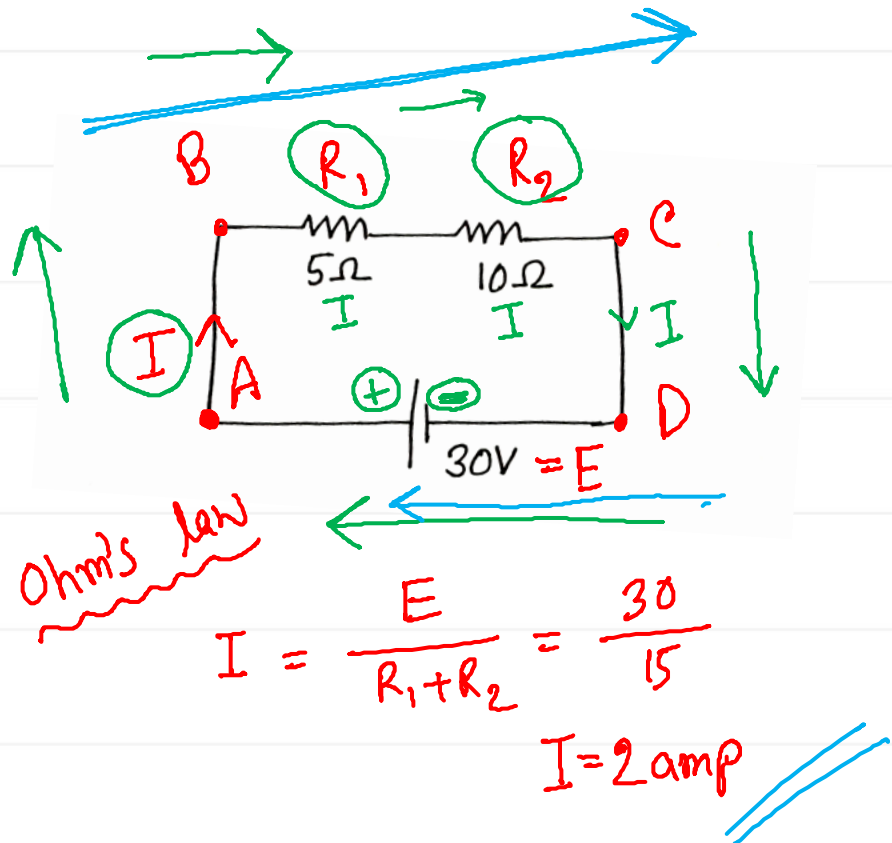 B R₁ R₂ C
5Ω 10Ω
I I I
I A + - D
30V = E
Ohm's law
I = E / R₁+R₂ = 30 / 15
I=2amp